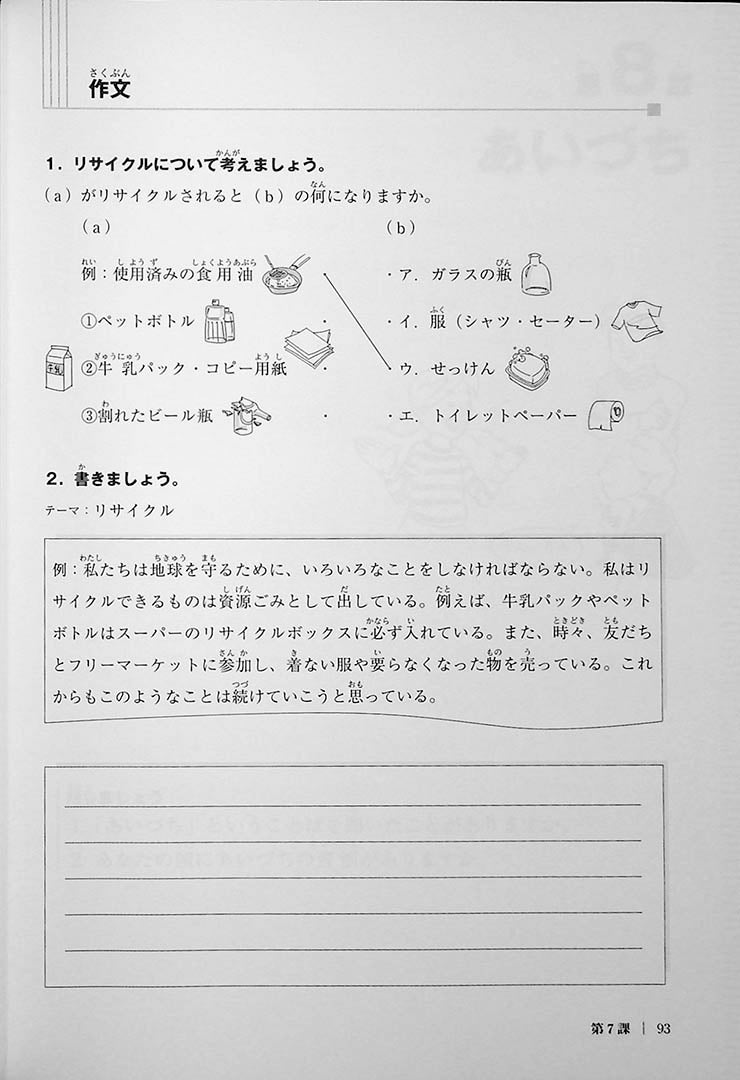 作文
1. リサイクルについて考えましょう。
(a)がリサイクルされると(b)の何になりますか。
(a) (b)
例：使用済みの食用油 ・ ・ア．ガラスの瓶
①ペットボトル ・ ・イ．服（シャツ・セーター）
②牛乳パック・コピー用紙 ・ ・ウ．せっけん
③割れたビール瓶 ・ ・エ．トイレットペーパー
2. 書きましょう。
テーマ：リサイクル
例：私たちは地球を守るために、いろいろなことをしなければならない。私はリ
サイクルできるものは資源ごみとして出している。例えば、牛乳パックやペット
ボトルはスーパーのリサイクルボックスに必ず入れている。また、時々、友だち
とフリーマーケットに参加し、着ない服や要らなくなった物を売っている。これ
からもこのようなことは続けていこうと思っている。
第7課 | 93